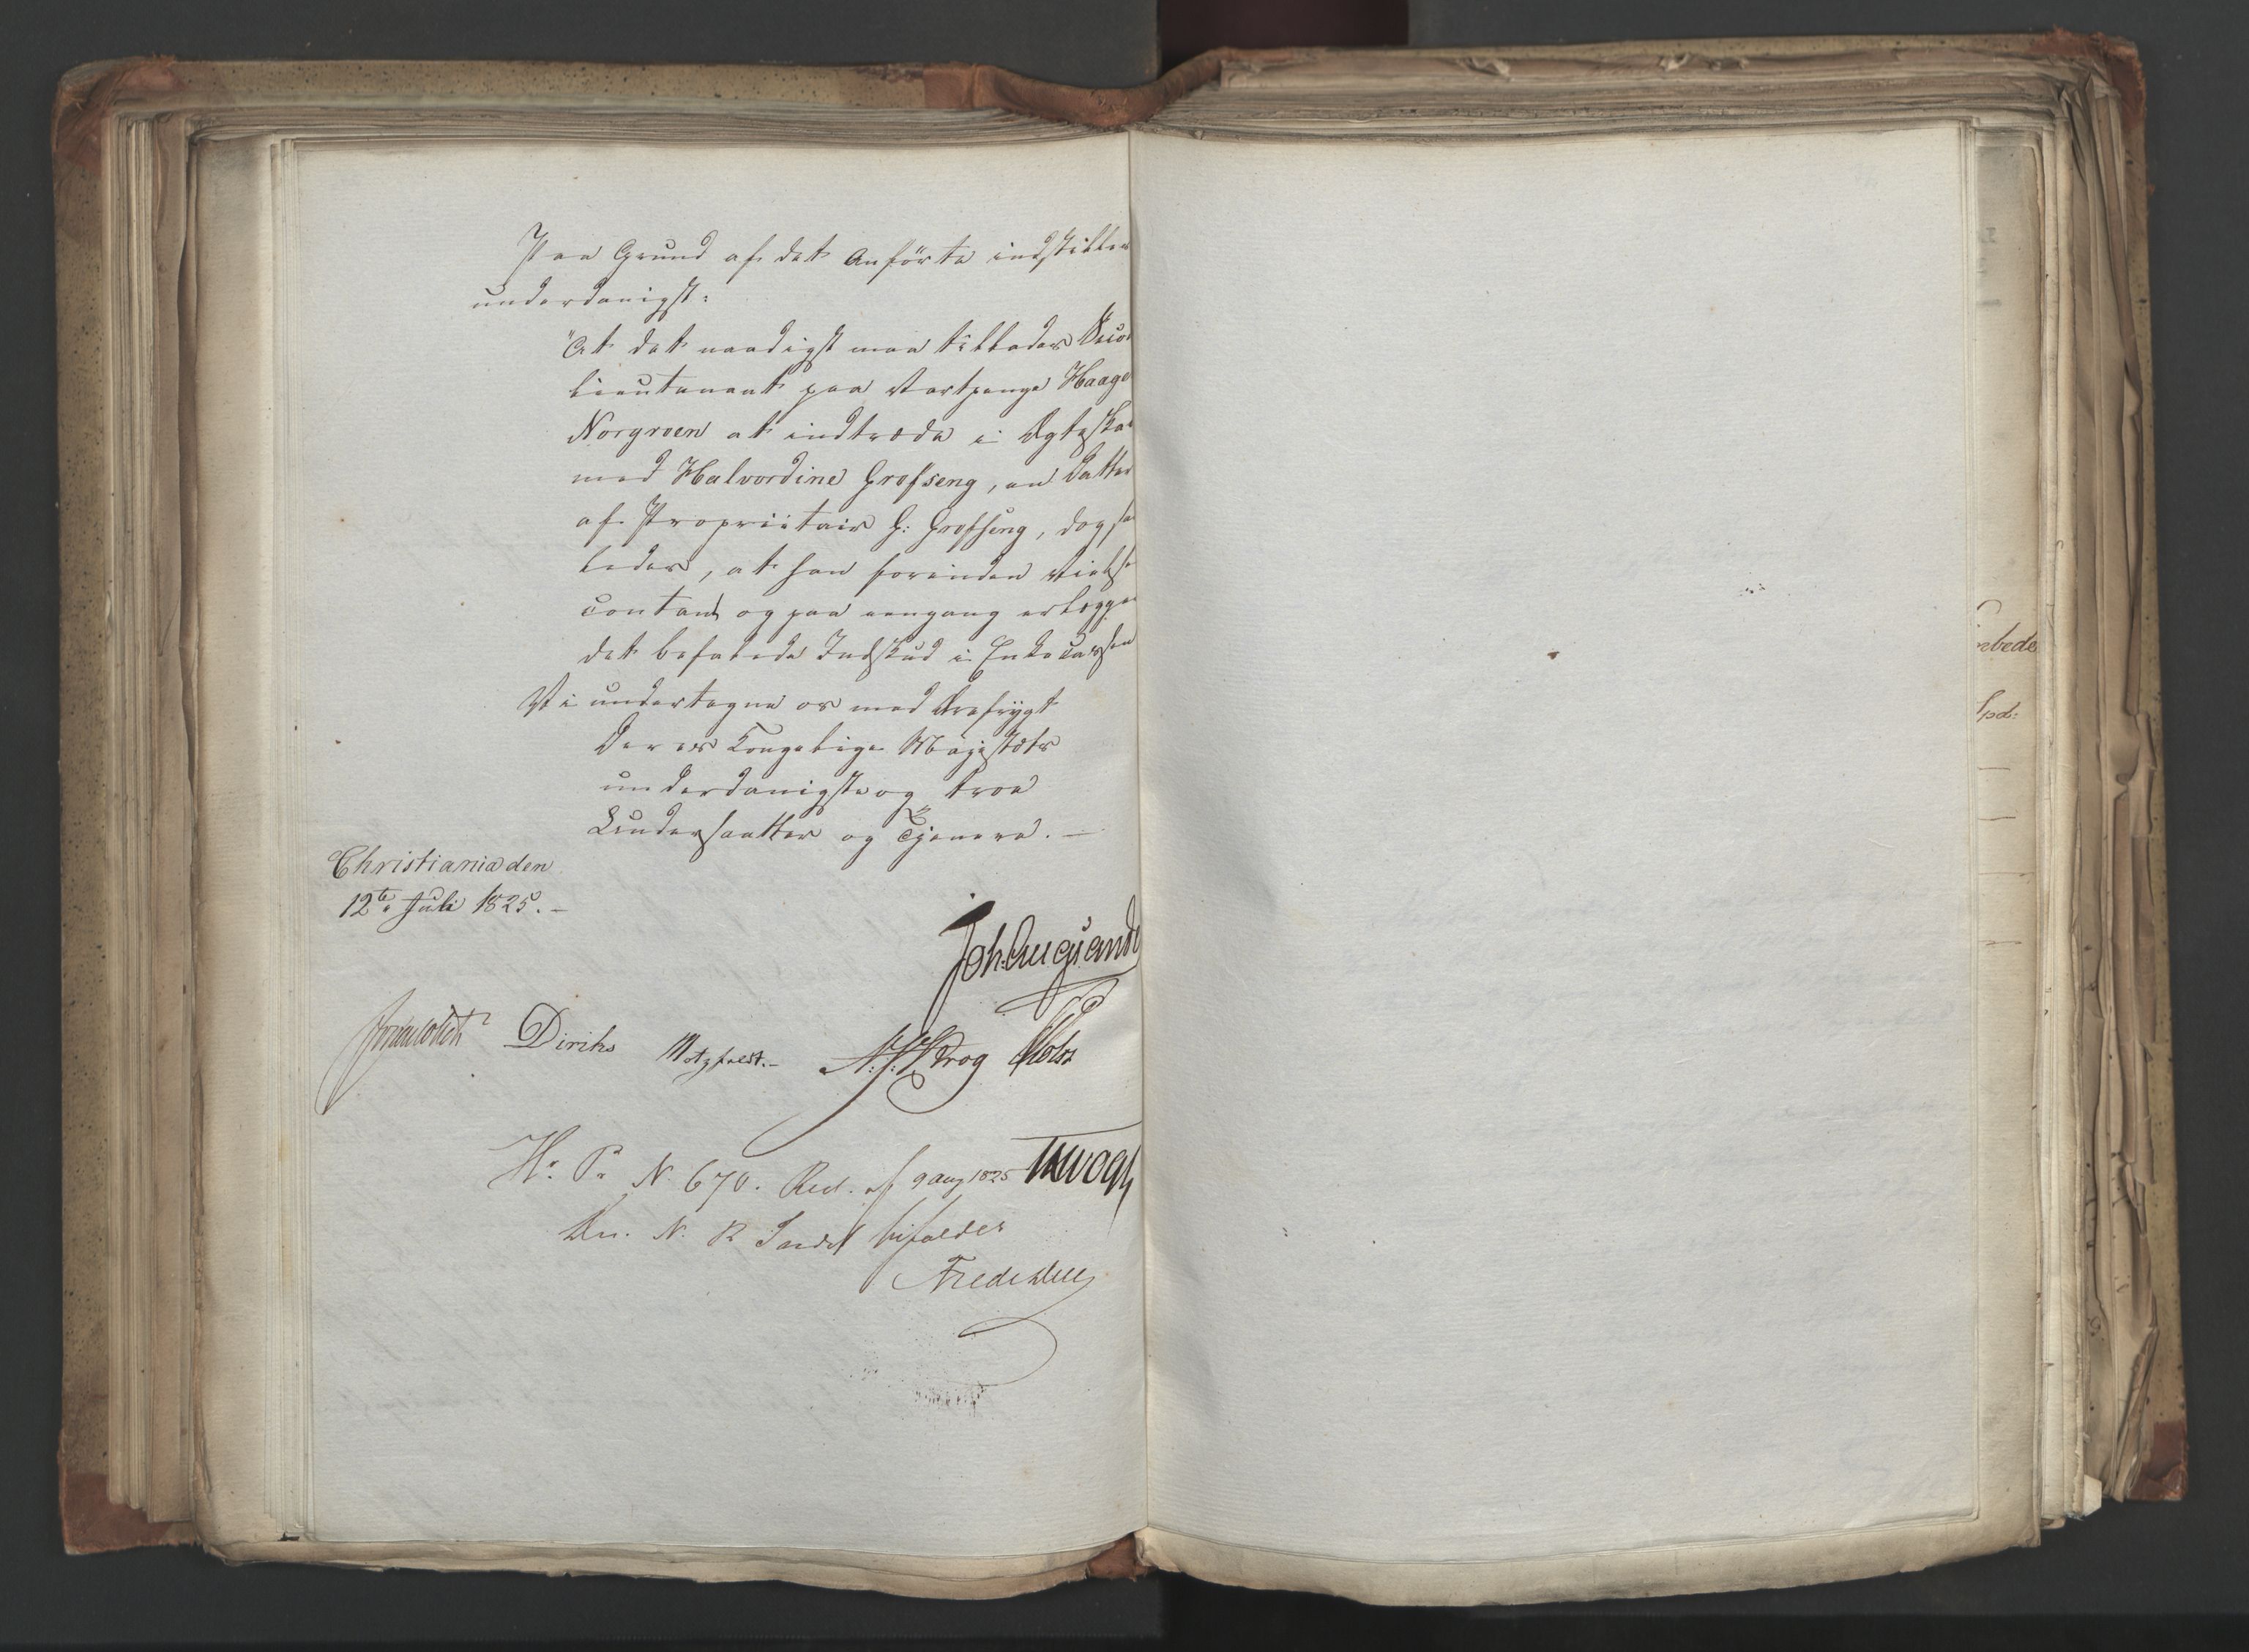 Paa Grund af det Anförte indstilles
underdanigst:
"At det naadigst maa tillades
Lieutenant paa Vartpenge Haage
Norgroen at indtræde i Ægteska
med Halvordine Grofseng, en Datter
af Proprietair G: Grofseng, dog saa
ledes, at han forinden Vielse
contant og paa eengang erlægger
det befalede Indskud i Enkecassen
Vi undertegne os med Ærefrygt
Deres Kongelige Majestæts
underdanigste og troe
Undersaatter og Tjenere. —
Christiania den
12te Juli 1825. —
Joh. Aug. Sande
Diriks Motzfeldt. — N: J: Krog Holst
H. P. N. 670. Res. af 9 Aug 1825
N. R Indst bifaldes
rbede
Spd: